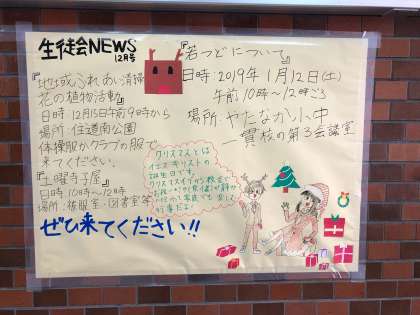 生徒会NEWS
12月号
『地域ふれあい清掃
花の植物活動』
日時:12月15日午前9時から
場所:住道南公園
体操服かクラブの服で
来てください。
『土曜寺子屋』
日時:10時〜12時
場所:被服室・図書室等
ぜひ来てください!!
『若つどについて』
日時:2019年1月12日(土)
午前10時〜12時ごろ
場所:やたなか小中
一貫校の第3会議室
クリスマスとは
イエス・キリストの
誕生日です。